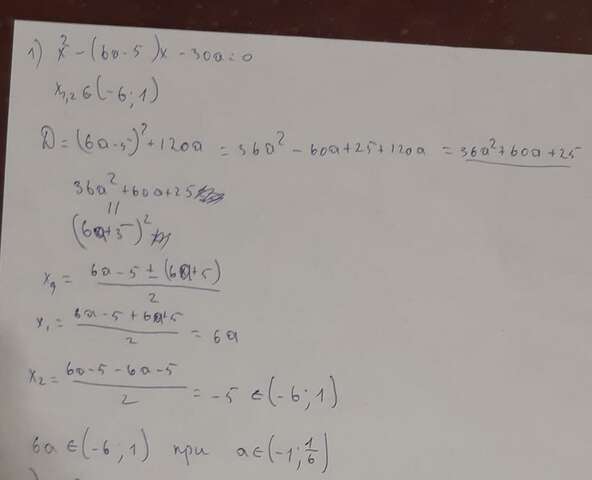 1) x² - (6a-5)x - 30a = 0
x₁,₂ ∈ (-6; 1)
D = (6a-5)² + 120a = 36a² - 60a + 25 + 120a = 36a² + 60a + 25
36a² + 60a + 25
||
(6a+5)²
x = (6a - 5 ± (6a+5))/2
x₁ = (6a - 5 + 6a + 5)/2 = 6a
x₂ = (6a - 5 - 6a - 5)/2 = -5 ∈ (-6; 1)
6a ∈ (-6; 1) при a ∈ (-1; 1/6)